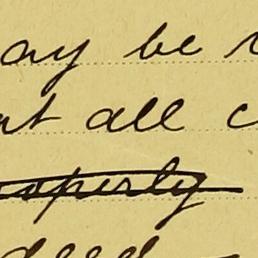 ay be
nt all c
operty
deed